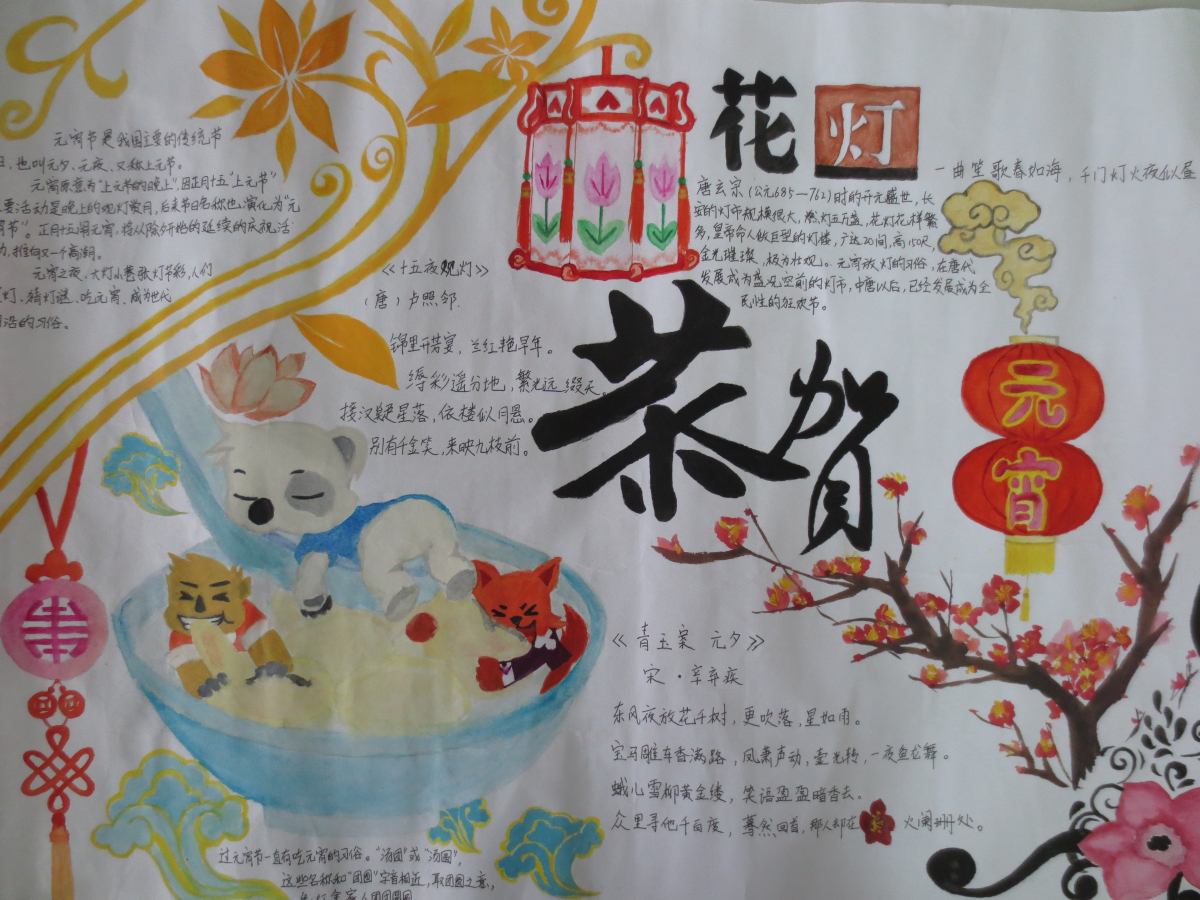 花灯
一曲笙歌春如海，千门灯火夜似昼
唐玄宗(公元685—762)时的开元盛世，长
安的灯市规模很大，燃灯五万盏，花灯花样繁
多，皇帝命人做巨型的灯楼，广达20间，高150尺，
金光璀璨，极为壮观。元宵放灯的习俗，在唐代
发展成为盛况空前的灯市，中唐以后，已经发展成为全
民性的狂欢节。
元宵节是我国主要的传统节
日，也叫元夕、元夜、又称上元节。
元宵原意为"上元节的晚上"，因正月十五"上元节"
要活动是晚上的观灯赏月，后来节日名称也演化为"元
宵节"。正月十五闹元宵，将从除夕开始的延续的庆祝活
动，推向又一个高潮。
元宵之夜，大灯小巷歌灯节彩，人们
灯、猜灯谜、吃元宵、成为世代
沿的习俗。
《十五夜观灯》
(唐) 卢照邻
锦里开芳宴，兰红艳早年。
缛彩遥分地，繁光远缀天。
接汉疑星落，依楼似月悬。
别有千金笑，来映九枝前。
恭贺
元宵
《青玉案 元夕》
宋·辛弃疾
东风夜放花千树，更吹落，星如雨。
宝马雕车香满路，凤萧声动，壶光转，一夜鱼龙舞。
蛾儿雪柳黄金缕，笑语盈盈暗香去。
众里寻他千百度，蓦然回首，那人却在 火阑珊处。
过元宵节一直有吃元宵的习俗。"汤圆"或"汤团"，
这些名称和"团圆"字音相近，取团圆之意，
家人团团圆圆